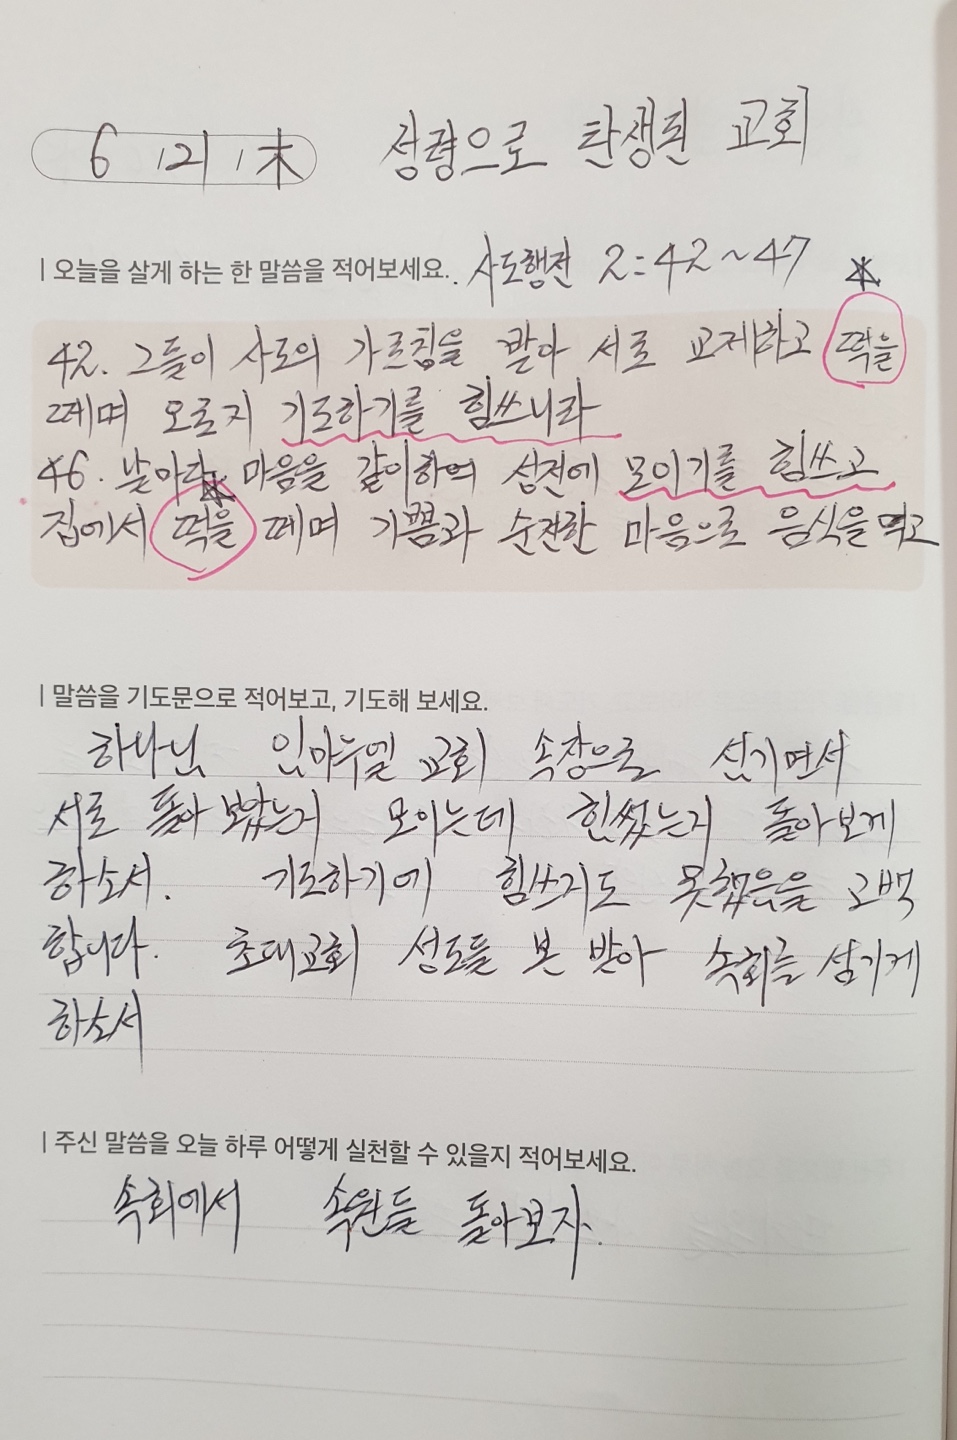 6 / 21 / 木 성령으로 탄생된 교회
| 오늘을 살게 하는 한 말씀을 적어보세요. 사도행전 2:42~47
42. 그들이 사도의 가르침을 받아 서로 교제하고 떡을
떼며 오로지 기도하기를 힘쓰니라
46. 날마다 마음을 같이하여 성전에 모이기를 힘쓰고
집에서 떡을 떼며 기쁨과 순전한 마음으로 음식을 먹고
| 말씀을 기도문으로 적어보고, 기도해 보세요.
하나님 임마누엘 교회 속장으로 섬기면서
서로 돌아 보았는지 모이는데 힘썼는지 돌아보게
하소서. 기도하기에 힘쓰지도 못했음을 고백
합니다. 초대교회 성도들 본 받아 속회를 섬기게
하소서
| 주신 말씀을 오늘 하루 어떻게 실천할 수 있을지 적어보세요.
속회에서 속원들 돌아보자.